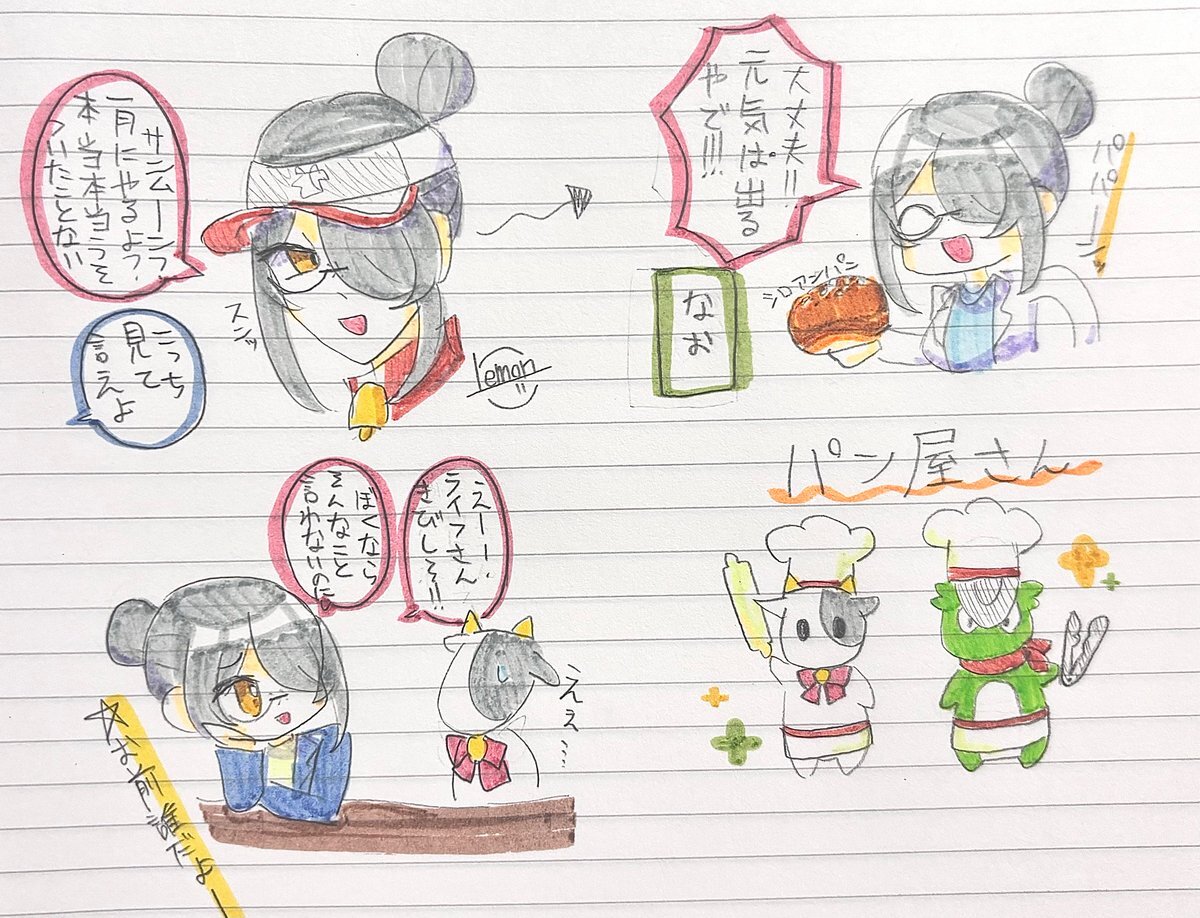 一月にやるよ?
本当本当うそ
ついたことない
こっち
見て
言えよ
スンッ
lemon
大丈夫!!
元気ぱ出る
やで!!!
なお
シロアンパン
パン屋さん
えーー!
ライフさん
きびしそ!!
ぼくなら
そんなこと
言わないのに
ええ…
☆お前誰だよー